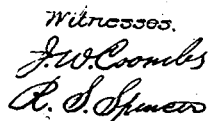 Witnesses.
J. W. Coombs
R. S. Spencer